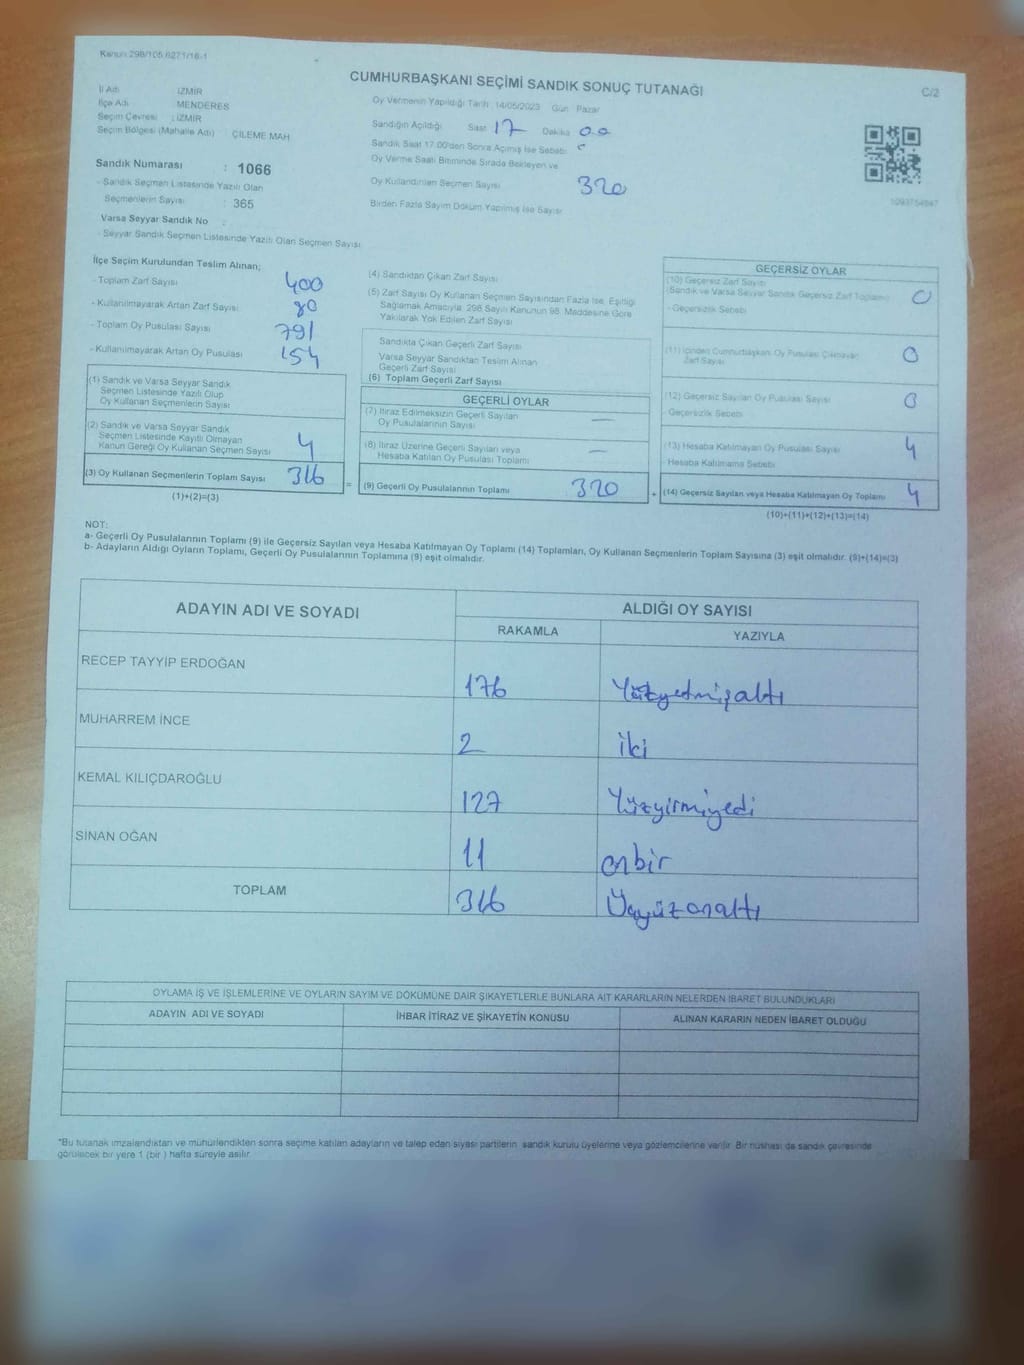 Kanun 298/105 6271/16-1
CUMHURBAŞKANI SEÇİMİ SANDIK SONUÇ TUTANAĞI
C/2
İl Adı : İZMİR
İlçe Adı : MENDERES
Seçim Çevresi : İZMİR
Seçim Bölgesi (Mahalle Adı) : ÇİLEME MAH
Sandık Numarası : 1066
- Sandık Seçmen Listesinde Yazılı Olan
Seçmenlerin Sayısı : 365
Varsa Seyyar Sandık No :
- Seyyar Sandık Seçmen Listesinde Yazılı Olan Seçmen Sayısı
Oy Vermenin Yapıldığı Tarih 14/05/2023 Gün Pazar
Sandığın Açıldığı Saat 17 Dakika 00
Sandık Saat 17.00'den Sonra Açılmış İse Sebebi
Oy Verme Saati Bitiminde Sırada Bekleyen ve
Oy Kullandırılan Seçmen Sayısı 320
Birden Fazla Sayım Döküm Yapılmış İse Sayısı
1093754847
İlçe Seçim Kurulundan Teslim Alınan;
- Toplam Zarf Sayısı 400
- Kullanılmayarak Artan Zarf Sayısı 80
- Toplam Oy Pusulası Sayısı 791
- Kullanılmayarak Artan Oy Pusulası 154
(1) Sandık ve Varsa Seyyar Sandık
Seçmen Listesinde Yazılı Olup
Oy Kullanan Seçmenlerin Sayısı
(2) Sandık ve Varsa Seyyar Sandık
Seçmen Listesinde Kayıtlı Olmayan
Kanun Gereği Oy Kullanan Seçmen Sayısı 4
(3) Oy Kullanan Seçmenlerin Toplam Sayısı 316
(1)+(2)=(3)
=
(4) Sandıktan Çıkan Zarf Sayısı
(5) Zarf Sayısı Oy Kullanan Seçmen Sayısından Fazla İse, Eşitliği
Sağlamak Amacıyla, 298 Sayılı Kanunun 98. Maddesine Göre
Yakılarak Yok Edilen Zarf Sayısı
Sandıkta Çıkan Geçerli Zarf Sayısı
Varsa Seyyar Sandıktan Teslim Alınan
Geçerli Zarf Sayısı
(6) Toplam Geçerli Zarf Sayısı
GEÇERLİ OYLAR
(7) İtiraz Edilmeksizin Geçerli Sayılan
Oy Pusulalarının Sayısı —
(8) İtiraz Üzerine Geçerli Sayılan veya
Hesaba Katılan Oy Pusulası Toplamı —
(9) Geçerli Oy Pusulalarının Toplamı 320
+
GEÇERSİZ OYLAR
(10) Geçersiz Zarf Sayısı
(Sandık ve Varsa Seyyar Sandık Geçersiz Zarf Toplamı) 0
- Geçersizlik Sebebi
(11) İçinden Cumhurbaşkanı Oy Pusulası Çıkmayan
Zarf Sayısı 0
(12) Geçersiz Sayılan Oy Pusulası Sayısı 0
- Geçersizlik Sebebi
(13) Hesaba Katılmayan Oy Pusulası Sayısı 4
- Hesaba Katılmama Sebebi
(14) Geçersiz Sayılan veya Hesaba Katılmayan Oy Toplamı 4
(10)+(11)+(12)+(13)=(14)
NOT:
a- Geçerli Oy Pusulalarının Toplamı (9) ile Geçersiz Sayılan veya Hesaba Katılmayan Oy Toplamı (14) Toplamları, Oy Kullanan Seçmenlerin Toplam Sayısına (3) eşit olmalıdır. (9)+(14)=(3)
b- Adayların Aldığı Oyların Toplamı, Geçerli Oy Pusulalarının Toplamına (9) eşit olmalıdır.
ADAYIN ADI VE SOYADI ALDIĞI OY SAYISI
RAKAMLA YAZIYLA
RECEP TAYYİP ERDOĞAN 176 Yüzyetmişaltı
MUHARREM İNCE 2 iki
KEMAL KILIÇDAROĞLU 127 Yüzyirmiyedi
SİNAN OĞAN 11 onbir
TOPLAM 316 Üçyüzonaltı
OYLAMA İŞ VE İŞLEMLERİNE VE OYLARIN SAYIM VE DÖKÜMÜNE DAİR ŞİKAYETLERLE BUNLARA AİT KARARLARIN NELERDEN İBARET BULUNDUKLARI
ADAYIN ADI VE SOYADI İHBAR İTİRAZ VE ŞİKAYETİN KONUSU ALINAN KARARIN NEDEN İBARET OLDUĞU
*Bu tutanak imzalandıktan ve mühürlendikten sonra seçime katılan adayların ve talep eden siyasi partilerin sandık kurulu üyelerine veya gözlemcilerine verilir. Bir nüshası da sandık çevresinde
görülecek bir yere 1 (bir ) hafta süreyle asılır.